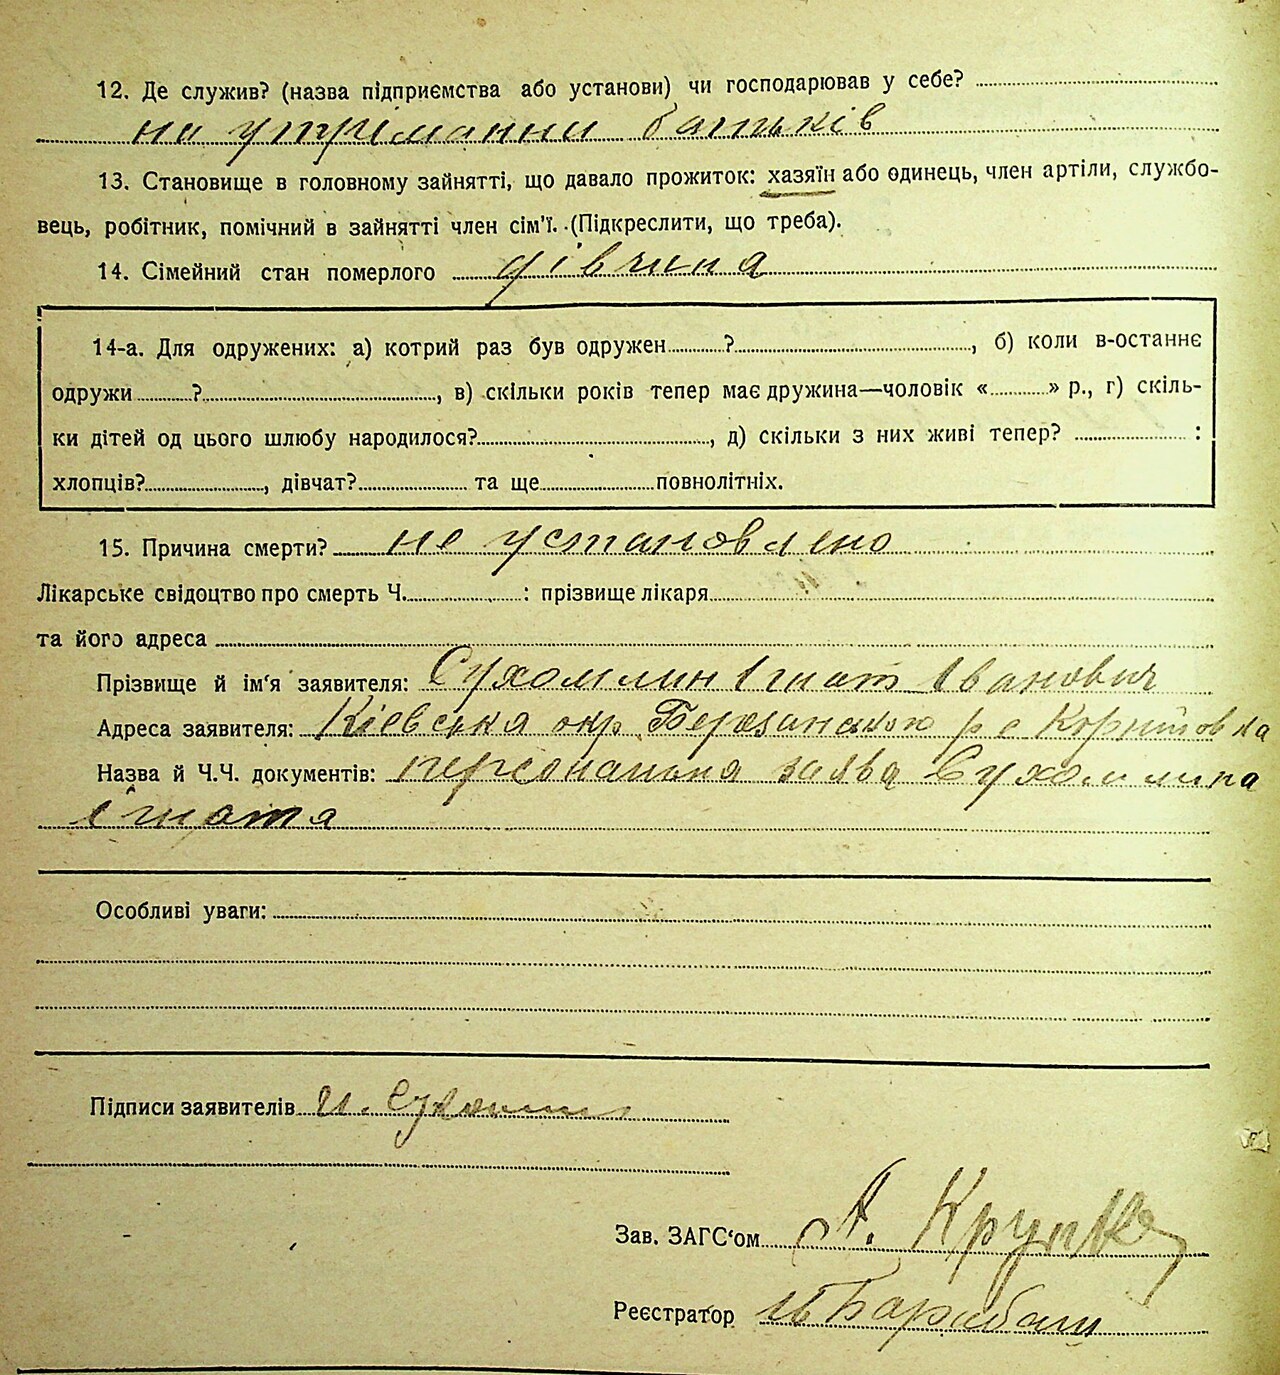 12. Де служив? (назва підприємства або установи) чи господарював у себе?
на утріманни батьків
13. Становище в головному зайнятті, що давало прожиток: хазяїн або одинець, член артіли, службо-
вець, робітник, помічний в зайнятті член сім'ї. (Підкреслити, що треба).
14. Сімейний стан померлого дівчина
14-а. Для одружених: а) котрий раз був одружен ? , б) коли в-останнє
одружи ? , в) скільки років тепер має дружина—чоловік « » р., г) скіль-
ки дітей од цього шлюбу народилося? , д) скільки з них живі тепер? :
хлопців? , дівчат? та ще повнолітніх.
15. Причина смерти? не установлено
Лікарське свідоцтво про смерть Ч. : прізвище лікаря
та його адреса
Прізвище й ім'я заявителя: Сухомлин Ігнат Іванович
Адреса заявителя: Київська окр Березанського р с
Назва й Ч.Ч. документів: персональна заява Сухомлина
Ігната
Особливі уваги:
Підписи заявителів И. Сухомлин
Зав. ЗАГС'ом А.
Реєстратор Барабаш